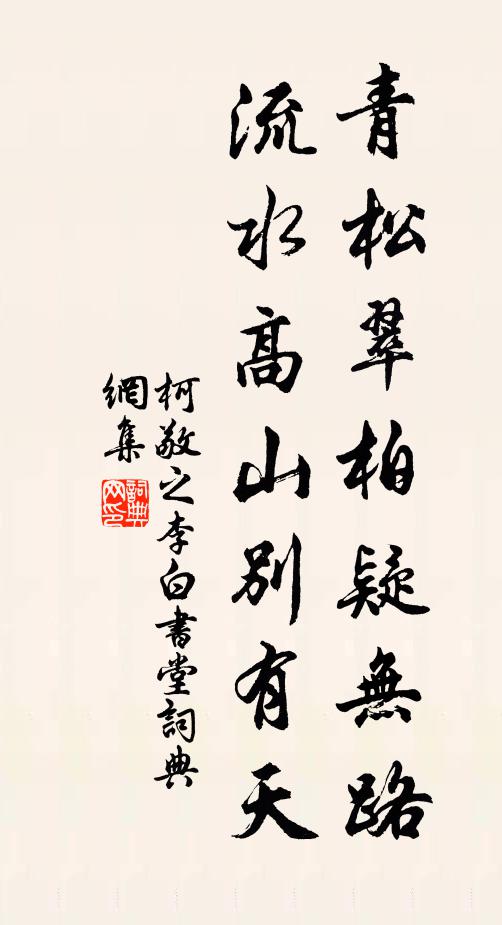 青松翠柏疑無路
流水高山別有天
柯敬之李白書堂詞典
網集
詞典
网印